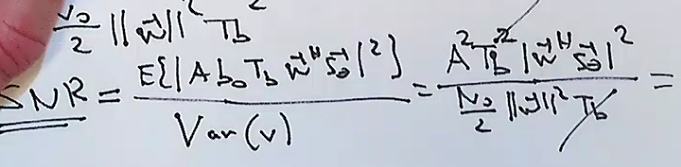 N₀/2 ||w⃗||² Tb
SNR = E{|A b₀ Tb w⃗ᴴ s⃗₀|²} / Var(v) = A² Tb² |w⃗ᴴ s⃗₀|² / N₀/2 ||w⃗||² Tb =